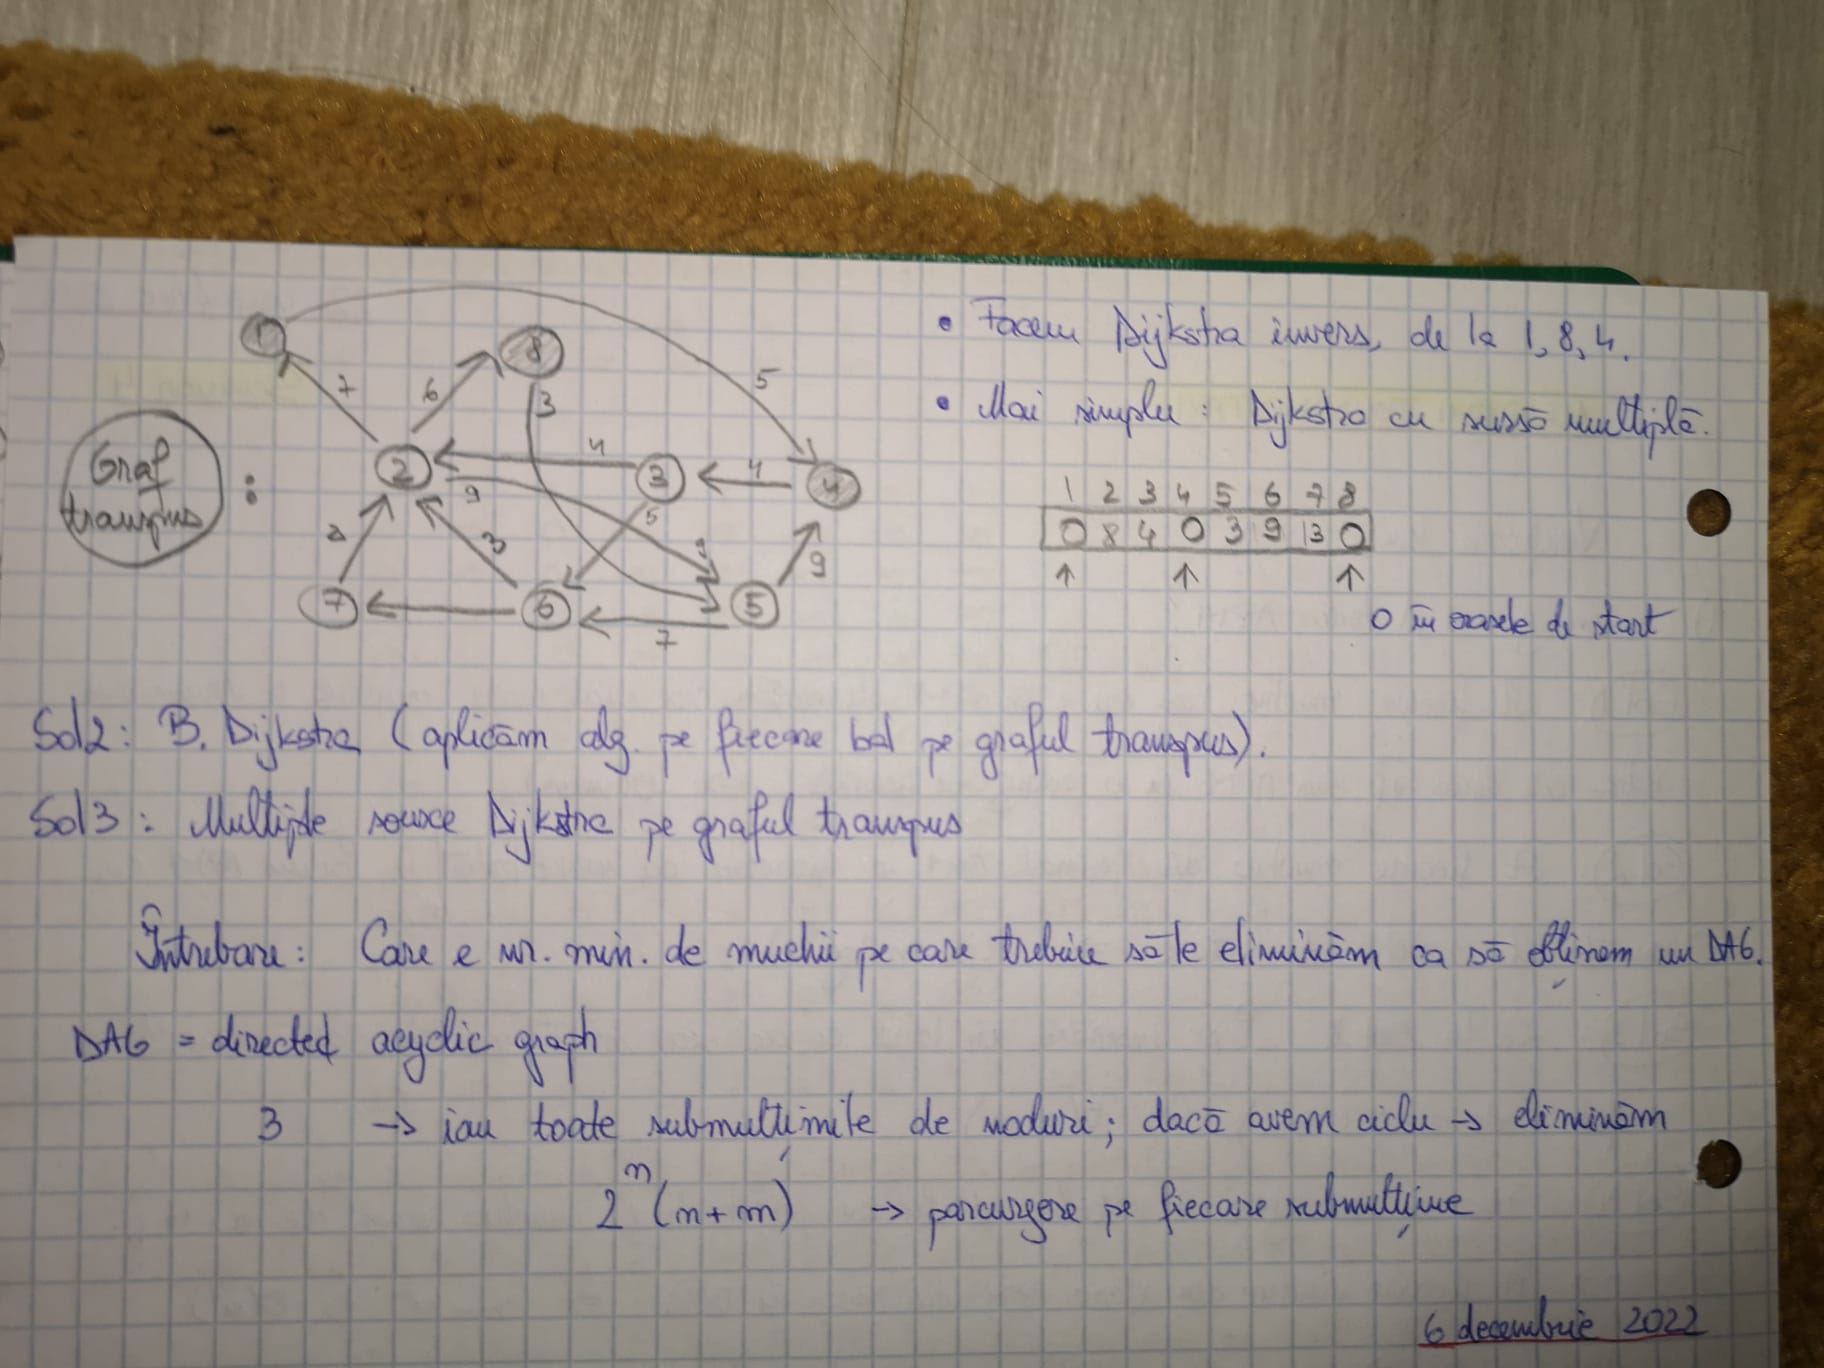 Graf
transpus :
1 8 2 3 4 7 6 5
7 6 3 5 4 4 9 5 3 9 7
• Facem Dijkstra invers, de la 1, 8, 4.
• Mai simplu : Dijkstra cu sursă multiplă.
1 2 3 4 5 6 7 8
0 8 4 0 3 9 13 0
↑ ↑ ↑
0 în orașele de start
Sol2 : B. Dijkstra (aplicăm alg. pe fiecare bal pe graful transpus).
Sol3 : Multiple source Dijkstra pe graful transpus
Întrebare : Care e nr. min. de muchii pe care trebuie să le eliminăm ca să obținem un DAG.
DAG = directed acyclic graph
3 → iau toate submulțimile de noduri ; dacă avem ciclu → eliminăm
2^n (n+m) → parcurgere pe fiecare submulțime
6 decembrie 2022